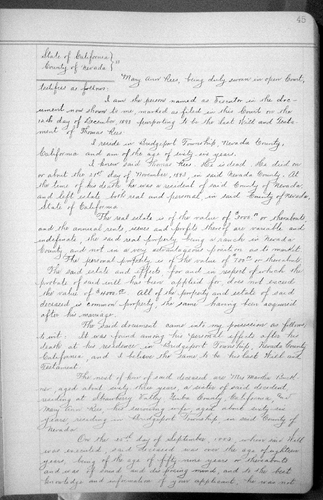 45
State of California }
County of Nevada } ss
Mary Ann Rees, being duly sworn in open Court,
testifies as follows:
I am the person named as Executor in the doc-
ument now shown to me, marked as filed in this Court on the
day of December, 1893 purporting to be the last Will and Testa-
ment of Thomas Rees
I reside in Bridgeport Township, Nevada County,
California and am of the age of sixty six years.
I knew said Thomas Rees. He is dead. He died on
or about the day of November, 1893, in said Nevada County. At
the time of his death he was a resident of said County of Nevada
and left estate, both real and personal, in said County of Nevada,
State of California.
The real estate is of the value of or thereabouts
and the annual rents, issues and profits thereof are variable and
indefinite, the said real property being a ranch in Nevada
County and not in a very advantageous location and condit.
The personal property is of the value of or thereabouts.
The said estate and effects for and in respect of which the
probate of said will has been applied for does not exceed
the value of All of the property and estate of said
deceased is common property, the same having been acquired
after his marriage.
The said document came into my possession as follows,
to wit: It was found among his personal effects after his
death at his residence, in Bridgeport Township, Nevada County
California, and I believe the same to be his last Will and
Testament.
The next of kin of said deceased are Mrs Martha
aged about sixty three years, a sister of said decedent,
residing at Strawberry Valley Yuba County, California, and
Mary Ann Rees his surviving wife, aged about sixty six
years, residing in Bridgeport Township, in said County of
Nevada
On the day of September, when said Will
was executed, said deceased was over the age of eighteen
years, being of the age of fifty nine years or thereabouts
and was of sound and disposing mind, and to the best
knowledge and information of your applicant, he was not